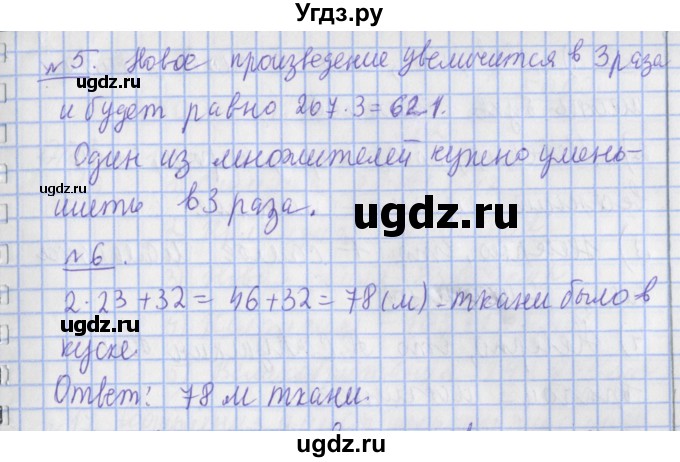 Угдз.ру
№5. Новое произведение увеличится в 3 раза
gdz.ru
и будет равно 207·3=621.
Один из множителей нужно умень-
gdz.ru
шить в 3 раза.
ugdz.ru
№6.
2·23+32=46+32=78(м)-ткани было в
ugdz.ru
куске.
gdz.ru
Ответ: 78 м ткани.
ugdz.ru
ugdz.ru